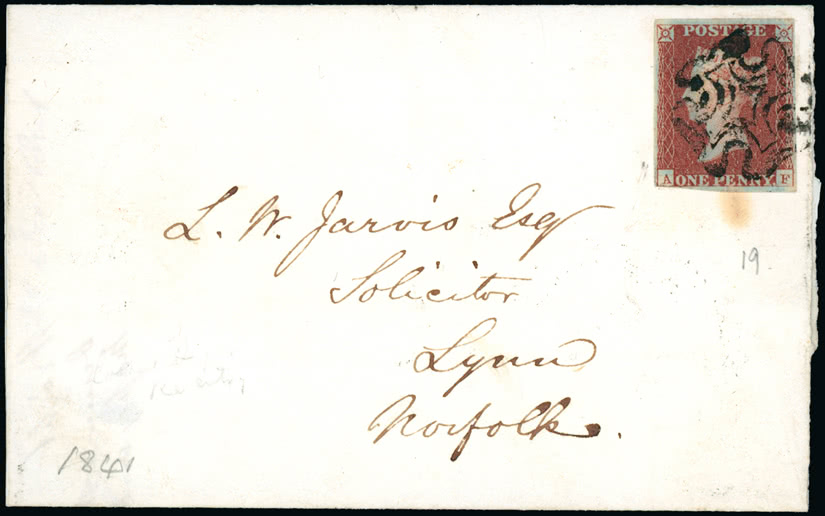 POSTAGE
A ONE PENNY F
L. W. Jarvis Esq
Solicitor
Lynn
Norfolk.
19
1841